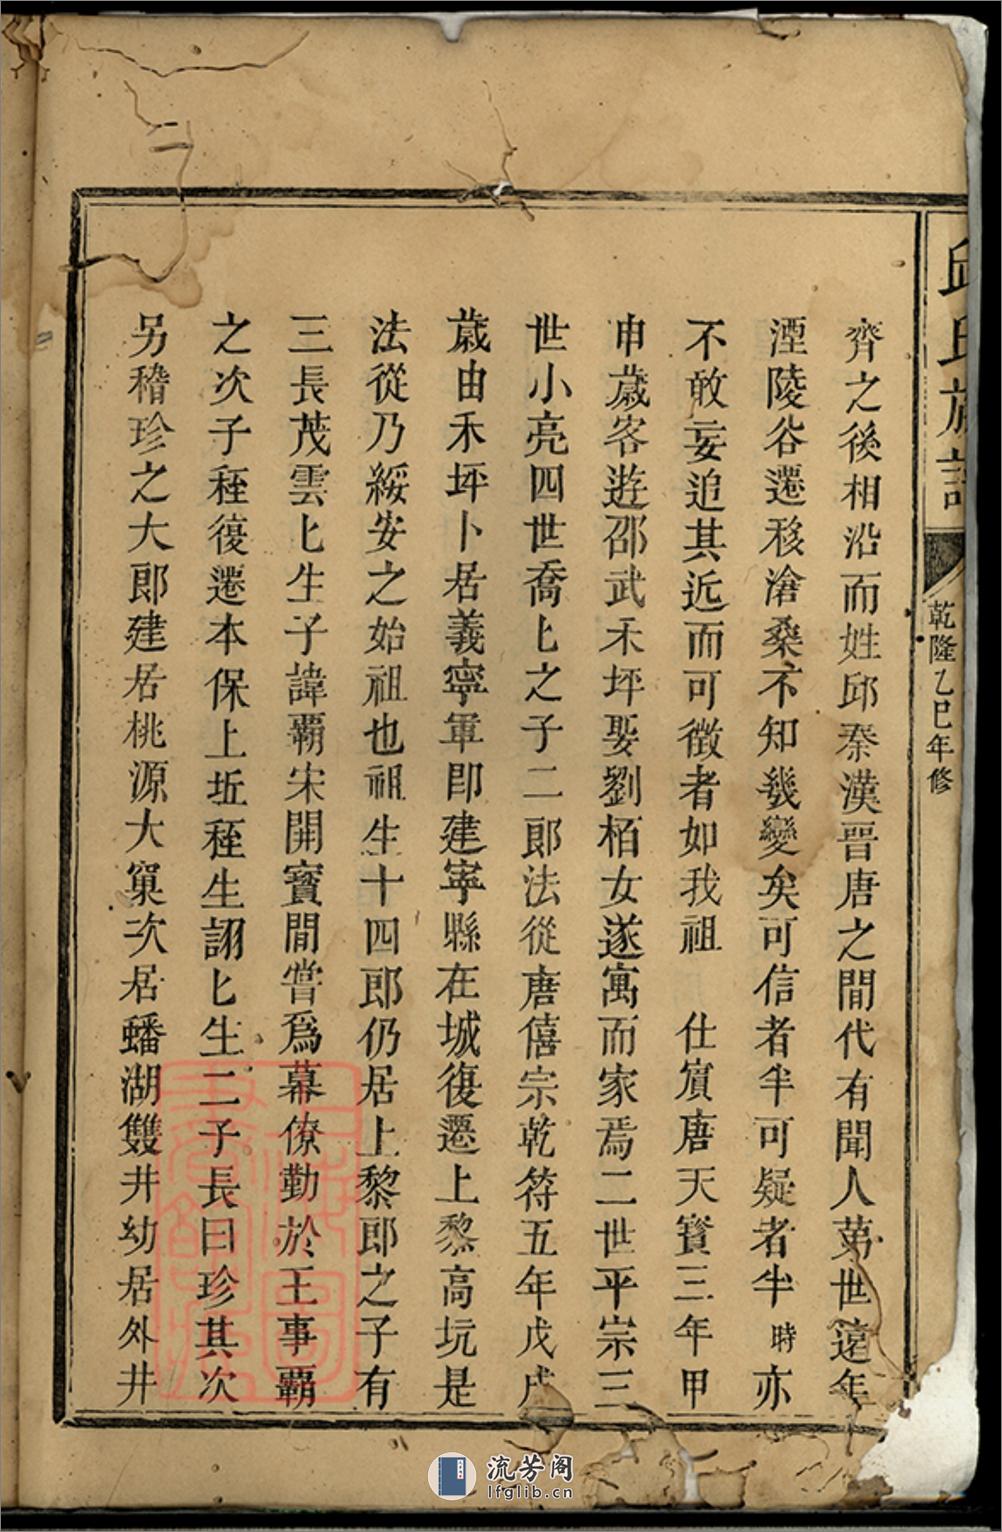 邱氏族譜
乾隆乙巳年修
齊之後相沿而姓邱秦漢晋唐之間代有聞人苐世遠年
湮陵谷遷移滄桑不知幾變矣可信者半可疑者半時亦
不敢妄追其近而可徴者如我祖 仕賔唐天寳三年甲
申歳客遊邵武禾坪娶劉栢女遂寓而家焉二世平崇三
世小亮四世喬匕之子二郎法從唐僖宗乾符五年戊戌
歳由禾坪卜居義寧軍即建寧縣在城復遷上黎高坑是
法從乃綏安之始祖也祖生十四郎仍居上黎郎之子有
三長茂雲匕生子諱覇宋開寳間嘗爲幕僚勤於王事覇
之次子秷復遷本保上坵秷生詡匕生二子長曰珍其次
另稽珍之大郎建居桃源大窠次居蟠湖雙井幼居外井
流芳阁
lfglib.cn